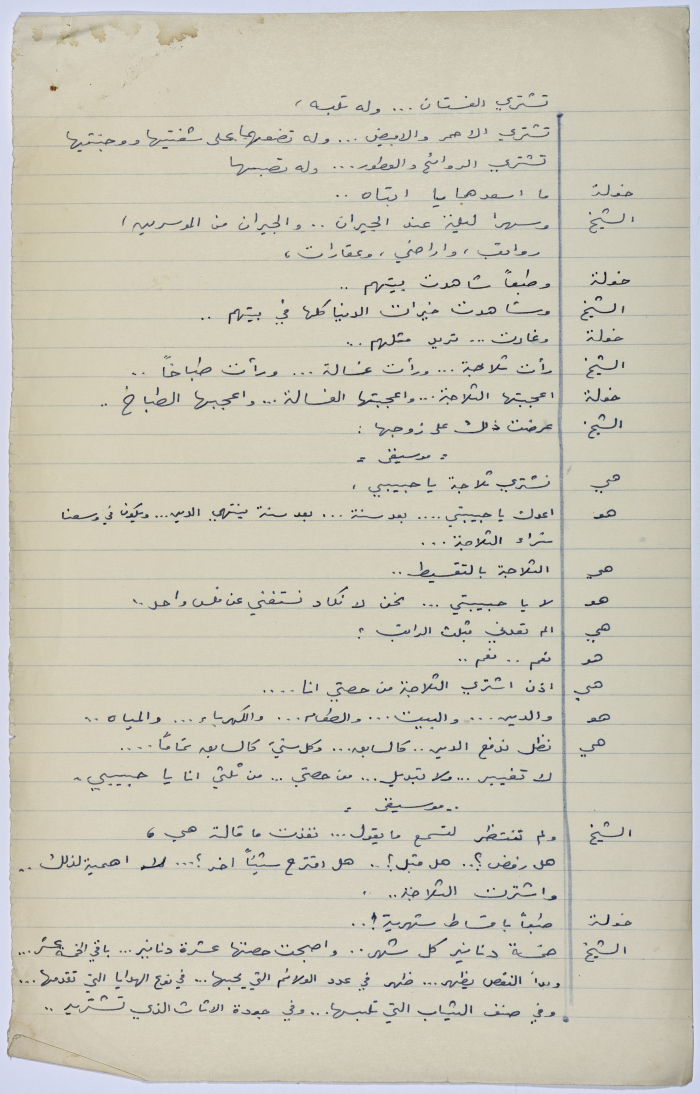 تشتري الفستان ... وله تلبسه ،
تشتري الاحمر والابيض ... وله تضعهما على شفتيها ووجنتيها
تشتري الروائح والعطور ... وله تصبها
خولة ما اسعدهما يا ابتاه ..
الشيخ وسهرا ليلة عند الجيران .. والجيران من الموسرين ،
رواتب ، واراضي ، وعقارات ،
خولة وطبعاً شاهدت بيتهم ..
الشيخ وشاهدت خيرات الدنيا كلها في بيتهم ..
خولة وغارت ... تريد مثلهم ..
الشيخ رأت ثلاجة ... ورأت غسالة ... ورأت طباخاً ..
خولة اعجبتها الثلاجة ... واعجبتها الغسالة ... واعجبها الطباخ ..
الشيخ عرضت ذلك على زوجها :
= موسيقى =
هي نشتري ثلاجة يا حبيبي ،
هو اعدك يا حبيبتي .... بعد سنة ... بعد سنة ينتهي الدين ... ويكون في وسعنا
شراء الثلاجة ...
هي الثلاجة بالتقسيط ..
هو لا يا حبيبتي ... نحن لا نكاد نستغني عن فلس واحد ..
هي الم تعدني بثلث الراتب ؟
هو نعم .. نعم ..
هي اذن اشتري الثلاجة من حصتي انا ....
هو والدين ... والبيت ... والطعام ... والكهرباء ... والمياه ..
هي نظل ندفع الدين .. كالسابق ... وكل شيء كالسابق تماماً ....
لا تغيير ... ولا تبديل ... من حصتي ... من ثلثي انا يا حبيبي .
.. موسيقى =
الشيخ ولم تنتظر لتسمع ما يقول ... نفذت ما قالته هي ،
هل رفض ؟ .. هل قبل ؟ .. هل اقترح شيئاً اخر ؟ ... لا اهمية لذلك ..
واشترت الثلاجة ..
خولة طبعاً باقساط شهرية ! ..
الشيخ خمسة دنانير كل شهر .. واصبحت حصتها عشرة دنانير ... باقي الخمسة عشر ...
وبدأ النقص يظهر ... ظهر في عدد الولائم التي يحبها ... في نوع الهدايا التي تقدمها ...
وفي صنف الثياب التي تلبسها ... وفي جودة الاثاث الذي تشتريه ..